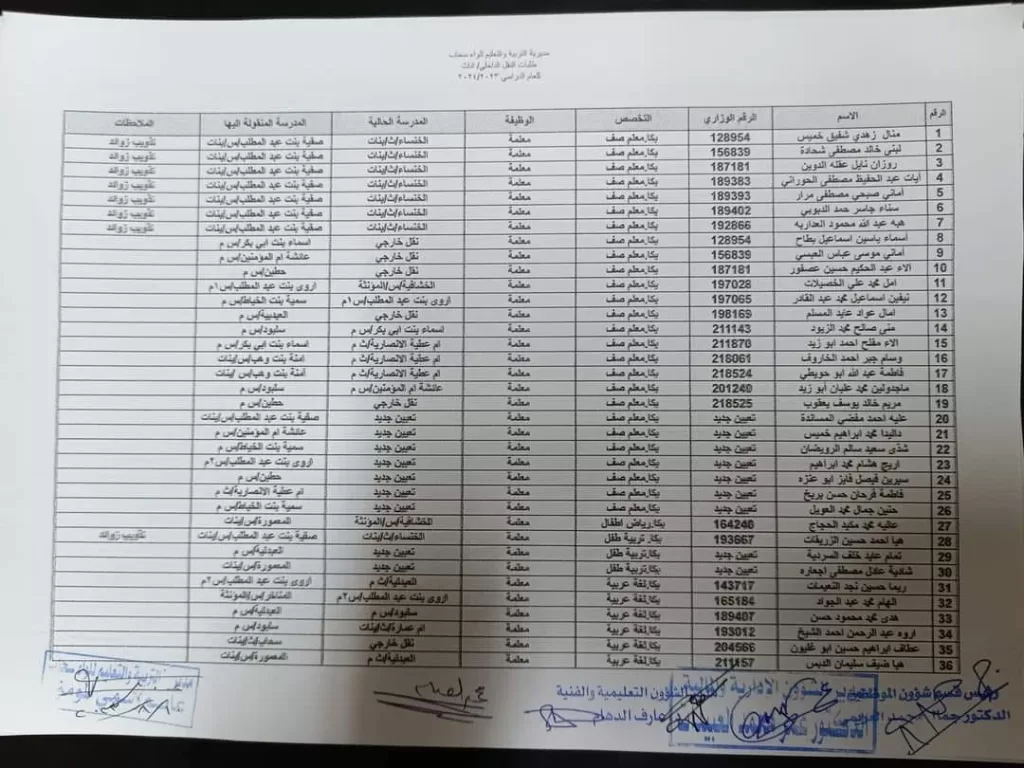 مديرية التربية والتعليم للواء سحاب
طلبات النقل الداخلي/ اناث
للعام الدراسي ٢٠٢٤/٢٠٢٣
الرقم الاسم الرقم الوزاري التخصص الوظيفة المدرسة الحالية المدرسة المنقولة اليها الملاحظات
1 منال زهدي شفيق خميس 128954 بكا.معلم صف معلمة الخنساء/ث/بنات صفية بنت عبد المطلب/س/بنات تذويب زوائد
2 لبنى خالد مصطفى شحادة 156839 بكا.معلم صف معلمة الخنساء/ث/بنات صفية بنت عبد المطلب/س/بنات تذويب زوائد
3 روزان نايل عقله الدوين 187181 بكا.معلم صف معلمة الخنساء/ث/بنات صفية بنت عبد المطلب/س/بنات تذويب زوائد
4 آيات عبد الحفيظ مصطفى الحوراني 189383 بكا.معلم صف معلمة الخنساء/ث/بنات صفية بنت عبد المطلب/س/بنات تذويب زوائد
5 أماني صبحي مصطفى مرار 189393 بكا.معلم صف معلمة الخنساء/ث/بنات صفية بنت عبد المطلب/س/بنات تذويب زوائد
6 سناء جاسر حمد الدبوبي 189402 بكا.معلم صف معلمة الخنساء/ث/بنات صفية بنت عبد المطلب/س/بنات تذويب زوائد
7 هبه عبد الله محمود العداربه 192866 بكا.معلم صف معلمة الخنساء/ث/بنات صفية بنت عبد المطلب/س/بنات تذويب زوائد
8 أسماء ياسين اسماعيل بطاح 128954 بكا.معلم صف معلمة نقل خارجي اسماء بنت ابي بكر/س م
9 أماني موسى عباس العبسي 156839 بكا.معلم صف معلمة نقل خارجي عائشة ام المؤمنين/س م
10 الاء عبد الحكيم حسين عصفور 187181 بكا.معلم صف معلمة نقل خارجي حطين/س م
11 امل محمد علي الخصيلات 197028 بكا.معلم صف معلمة الخشافية/س/المؤنثة اروى بنت عبد المطلب/س م1
12 نيفين اسماعيل محمد عبد القادر 197065 بكا.معلم صف معلمة اروى بنت عبد المطلب/س م1 سمية بنت الخياط/س م
13 امال عواد عايد المسلم 198169 بكا.معلم صف معلمة نقل خارجي العبدلية/س م
14 منى صالح محمد الزيود 211143 بكا.معلم صف معلمة اسماء بنت ابي بكر/س م سلبود/س م
15 الاء مفلح احمد ابو زيد 211870 بكا.معلم صف معلمة ام عطية الانصارية/ث م اسماء بنت ابي بكر/س م
16 وسام جبر احمد الخاروف 218061 بكا.معلم صف معلمة ام عطية الانصارية/ث م امنة بنت وهب/س/بنات
17 فاطمة عبد الله ابو حويطي 218524 بكا.معلم صف معلمة ام عطية الانصارية/ث م آمنة بنت وهب/س /بنات
18 ماجدولين محمد عليان ابو زيد 201240 بكا.معلم صف معلمة عائشة ام المؤمنين/س م سلبود/س م
19 مريم خالد يوسف يعقوب 218525 بكا.معلم صف معلمة نقل خارجي حطين/س م
20 عليه احمد مفضي المساندة تعيين جديد بكا.معلم صف معلمة تعيين جديد صفية بنت عبد المطلب/س/بنات
21 داليدا محمد ابراهيم خميس تعيين جديد بكا.معلم صف معلمة تعيين جديد عائشة ام المؤمنين/س م
22 شذى سعيد سالم الرويضان تعيين جديد بكا.معلم صف معلمة تعيين جديد سمية بنت الخياط/س م
23 اريج هشام محمد ابراهيم تعيين جديد بكا.معلم صف معلمة تعيين جديد اروى بنت عبد المطلب/س م2
24 سيرين فيصل فايز ابو عنزه تعيين جديد بكا.معلم صف معلمة تعيين جديد حطين/س م
25 فاطمة فرحان حسن بريخ تعيين جديد بكا.معلم صف معلمة تعيين جديد ام عطية الانصارية/ث م
26 حنين جمال محمد العويل تعيين جديد بكا.معلم صف معلمة تعيين جديد سمية بنت الخياط/س م
27 عاليه محمد مكيد الحجاج 164240 بكا.رياض اطفال معلمة الخشافية/س/المؤنثة المصورة/س/بنات
28 هيا احمد حسين الزريقات 193667 بكا.تربية طفل معلمة الخنساء/ث/بنات صفية بنت عبد المطلب/س/بنات تذويب زوائد
29 تمام عايد خلف السردية تعيين جديد بكا.تربية طفل معلمة تعيين جديد العبدلية/س م
30 شادية عادل مصطفى اجعاره تعيين جديد بكا.تربية طفل معلمة تعيين جديد المصورة/س/بنات
31 ريما حسين نجد النعيمات 143717 بكا.لغة عربية معلمة العبدلية/ث م اروى بنت عبد المطلب/س م2
32 الهام محمد عبد الجواد 165184 بكا.لغة عربية معلمة اروى بنت عبد المطلب/س م2 المناخر/س/المؤنثة
33 هدى محمد محمود حسن 189407 بكا.لغة عربية معلمة سلبود/س م العبدلية/س م
34 اروه عبد الرحمن احمد الشيخ 193012 بكا.لغة عربية معلمة ام عمارة/ث/بنات سلبود/س م
35 عطاف ابراهيم حسين ابو غليون 204566 بكا.لغة عربية معلمة نقل خارجي سحاب/ث/بنات
36 هيا ضيف سليمان الديس 211157 بكا.لغة عربية معلمة العبدلية/ث م المصورة/س/بنات
رئيس قسم شؤون الموظفين
الشؤون التعليمية والفنية
عارف الدهام
الشؤون الادارية والمالية
الدكتور